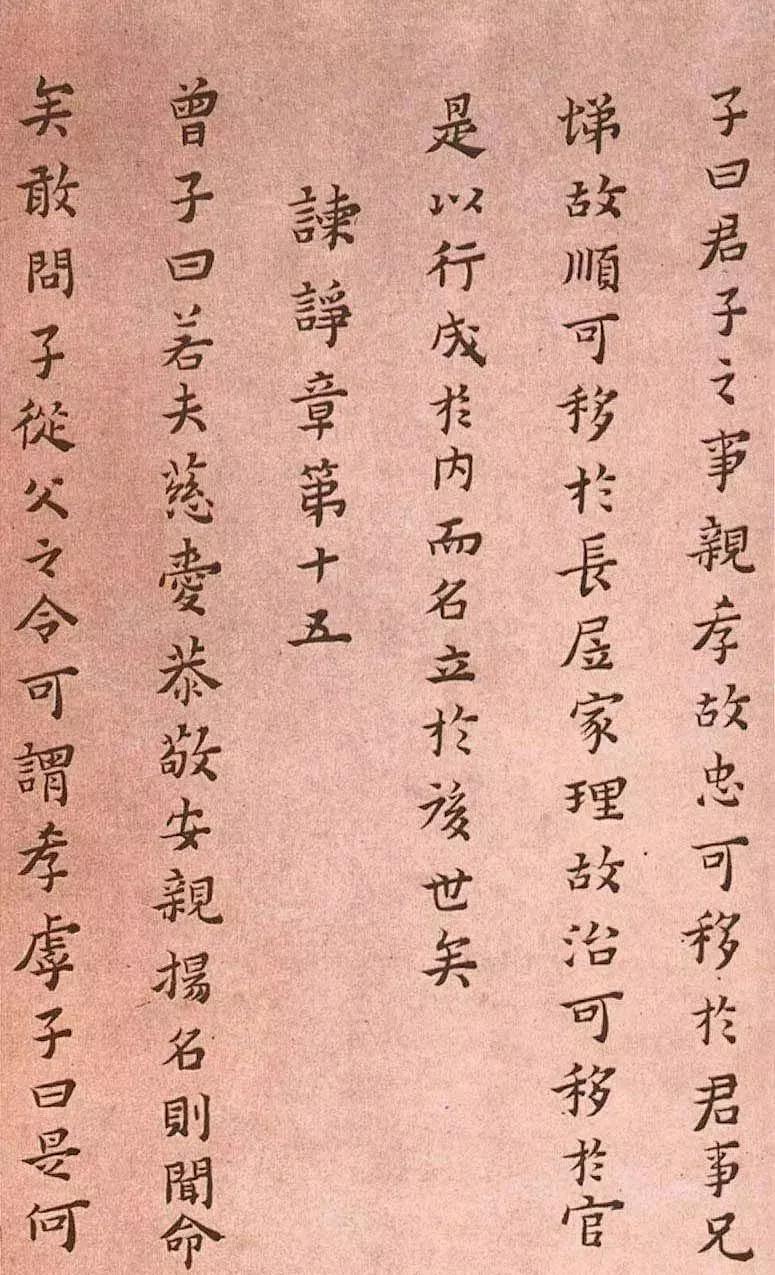 子曰君子之事親孝故忠可移於君事兄
悌故順可移於長居家理故治可移於官
是以行成於内而名立於後世矣
諫諍章第十五
曾子曰若夫慈愛恭敬安親揚名則聞命
矣敢問子從父之令可謂孝虖子曰是何